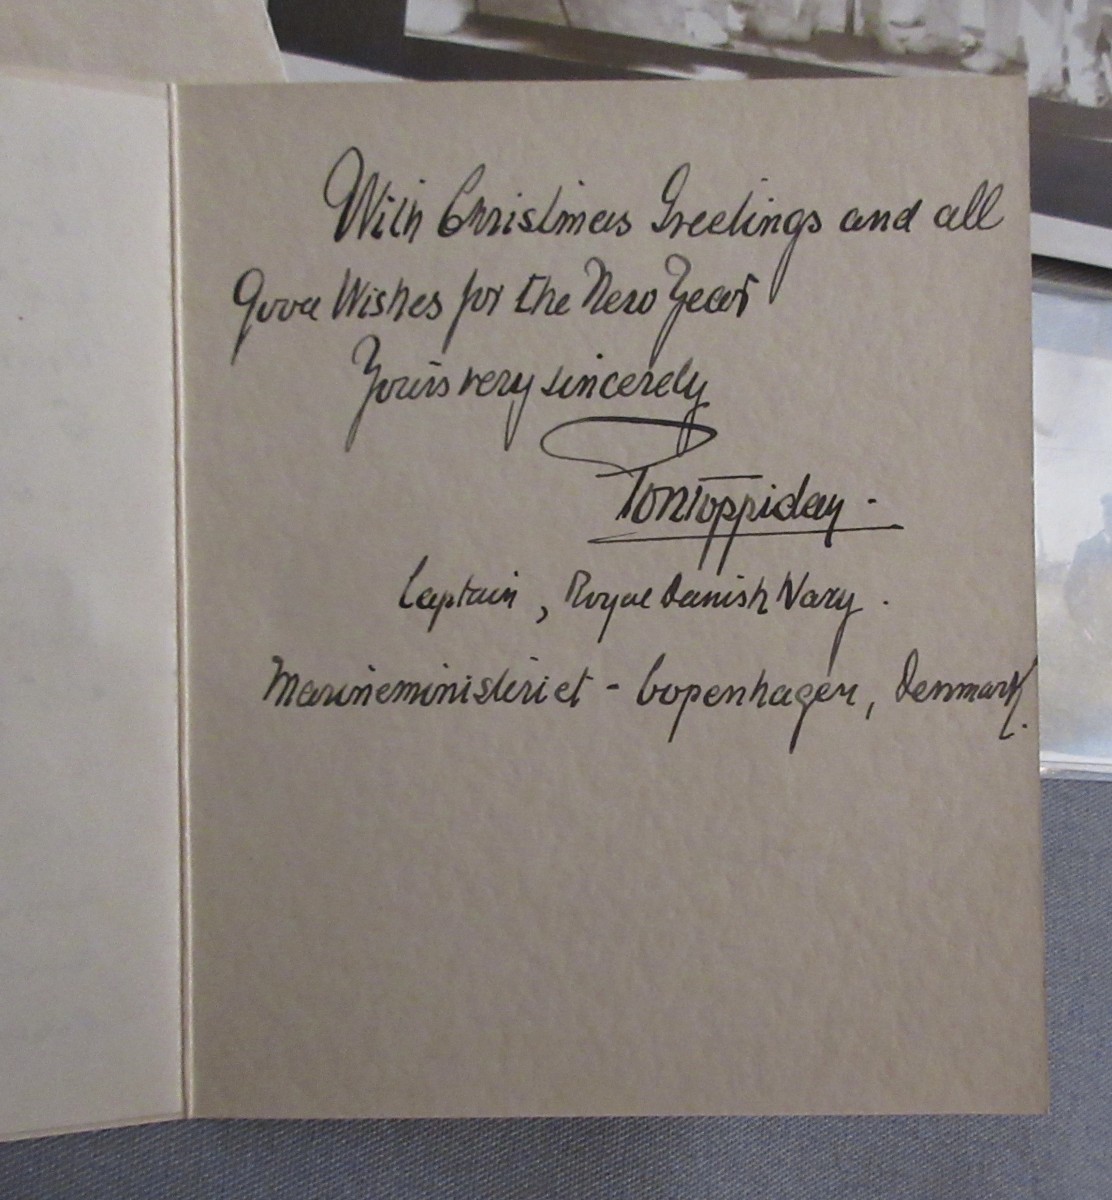 With Christmas Greetings and all
Good Wishes for the New Year
Yours very sincerely
Pontoppidan.
Captain, Royal Danish Navy.
Marineministeriet - Copenhagen, Denmark.